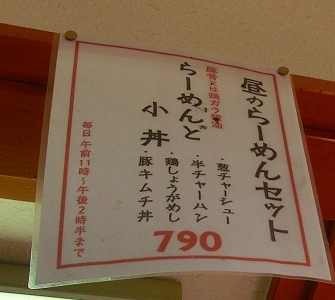 昼のらーめんセット
豚骨と鶏ガラ醤油
らーめんと
小丼
・葱チャーシュー
・半チャーハン
・鶏しょうがめし
・豚キムチ丼
790
毎日 午前11時〜午後2時半まで